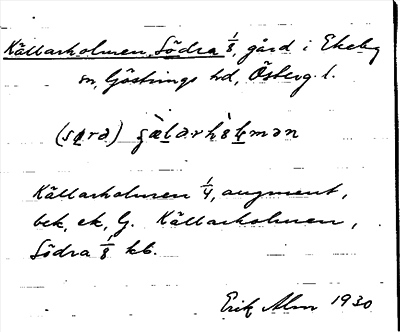 Källarholmen, Södra 1/8, gård i Ekeby
sn, Göstrings hd, Österg. l.
(sø̱rɑ) çæ̀ḻarhòḻmən
Källarholmen 1/4, augment,
bek. ek. G. Källarholmen,
Södra 1/8 kb.
Erik Alm 1930